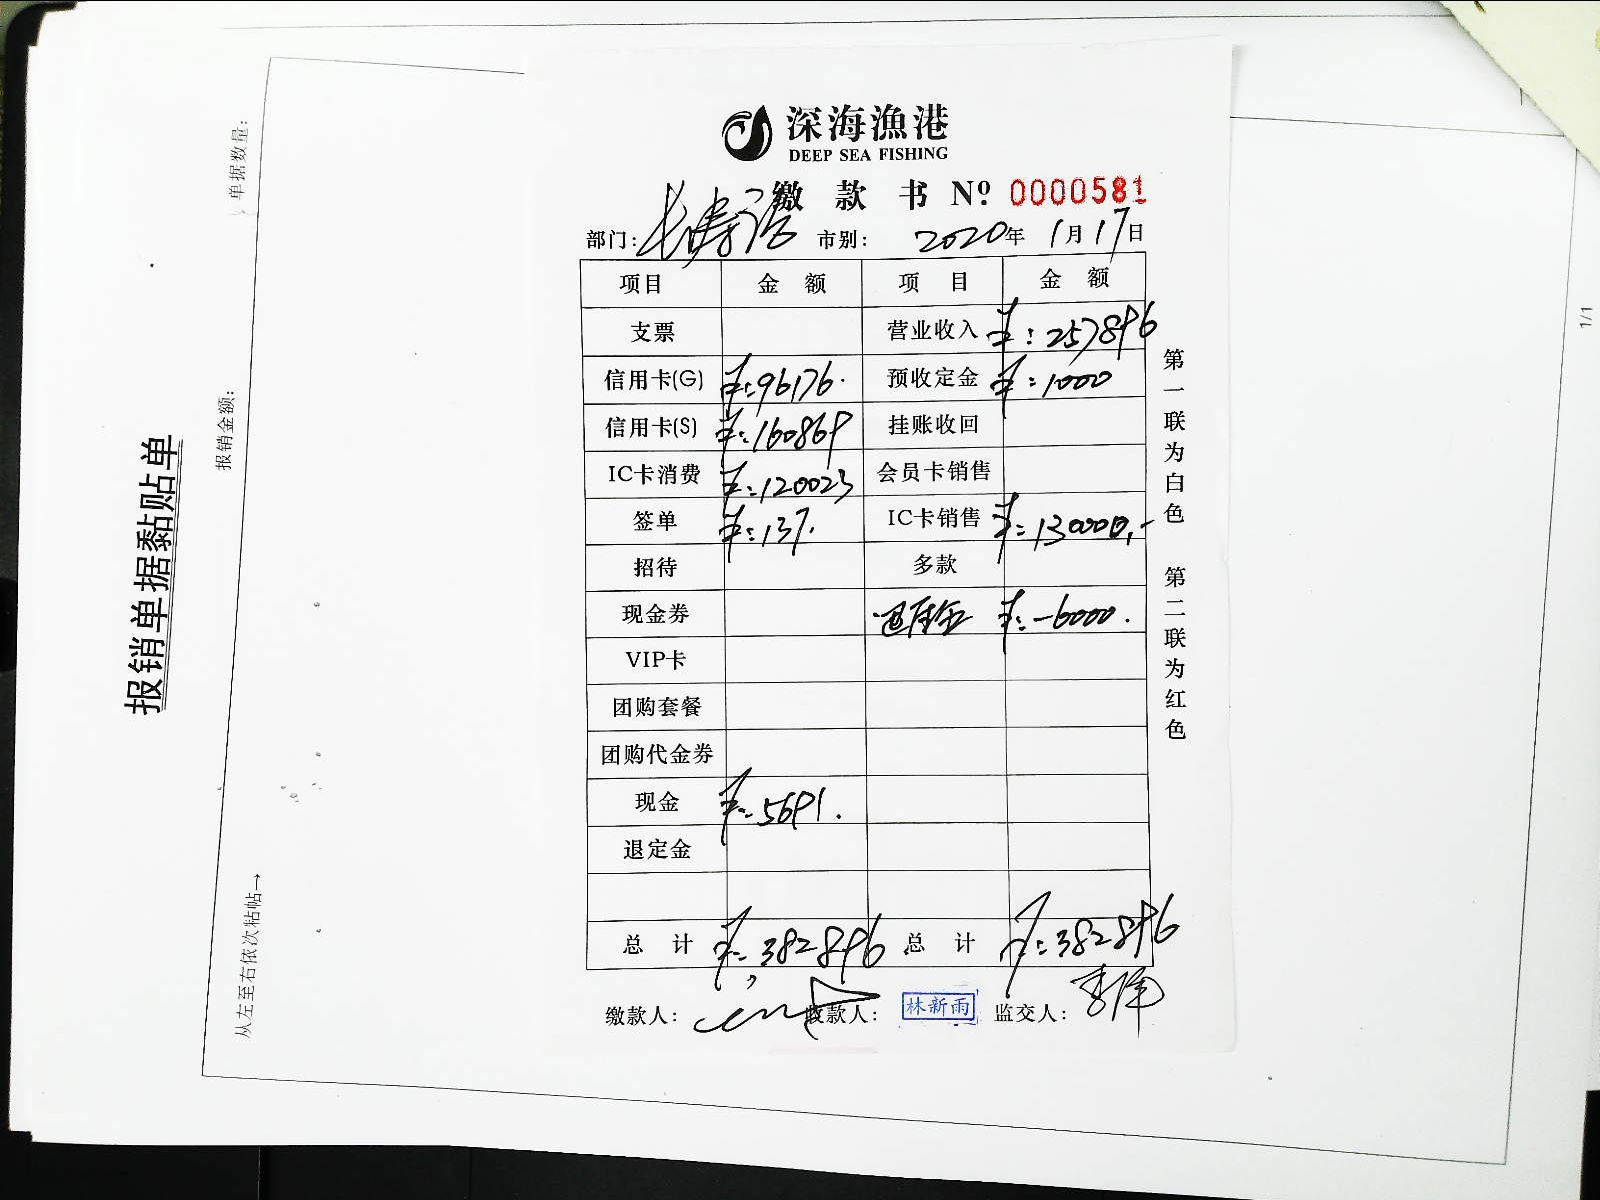 报销单据黏贴单
单据数量：
报销金额：
从左至右依次粘帖→
1/1
深海漁港
DEEP SEA FISHING
缴款书 Nº 0000581
部门：长寿路 市别： 2020年1月17日
项目 金额 项目 金额
支票 营业收入 ¥：257896
信用卡(G) ¥：96176. 预收定金 ¥：1000
信用卡(S) ¥：160869 挂账收回
IC卡消费 ¥：120023 会员卡销售
签单 ¥：137. IC卡销售 ¥：130000.-
招待 多款
现金券 退定金 ¥：-6000.
VIP卡
团购套餐
团购代金券
现金 ¥：5691.
退定金
总计 ¥：382896 总计 ¥：382896
缴款人： 收款人： 林新雨 监交人：
第一联为白色 第二联为红色